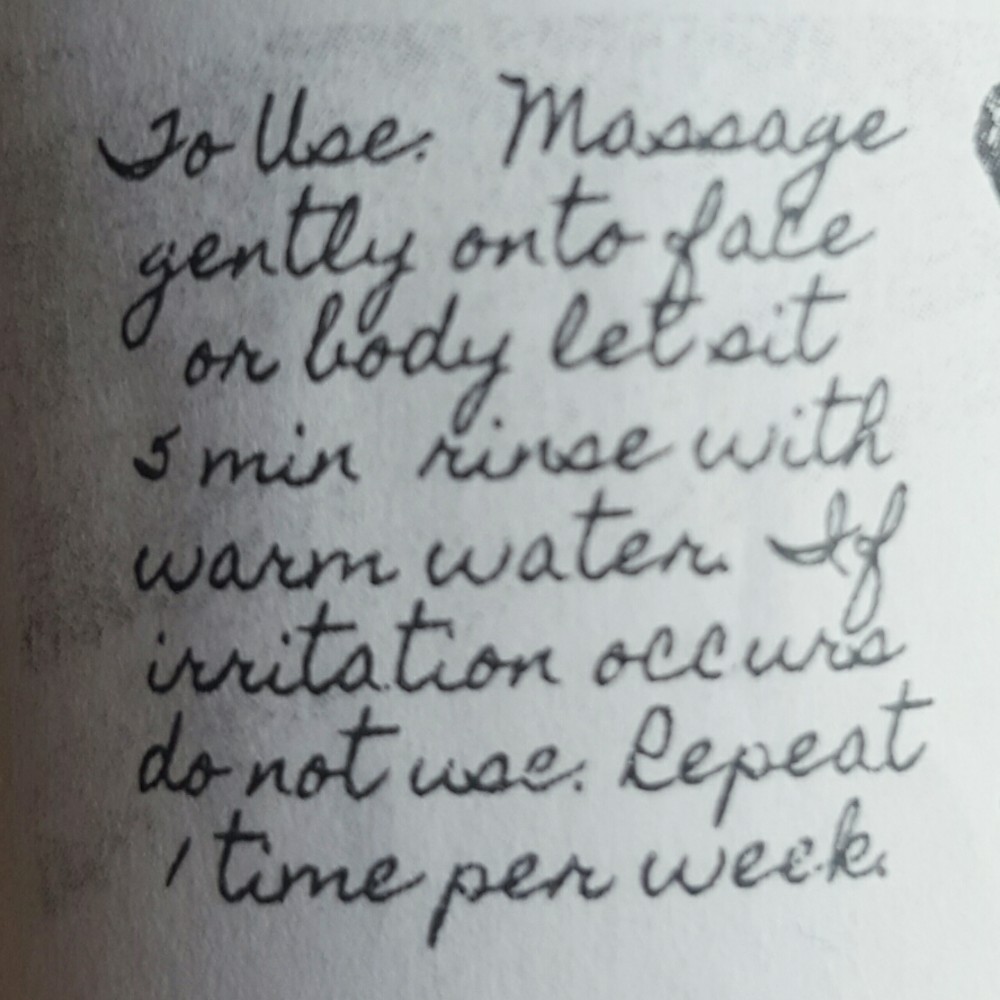 To Use. Massage
gently onto face
or body let sit
5 min rinse with
warm water. If
irritation occurs
do not use. Repeat
1 time per week.